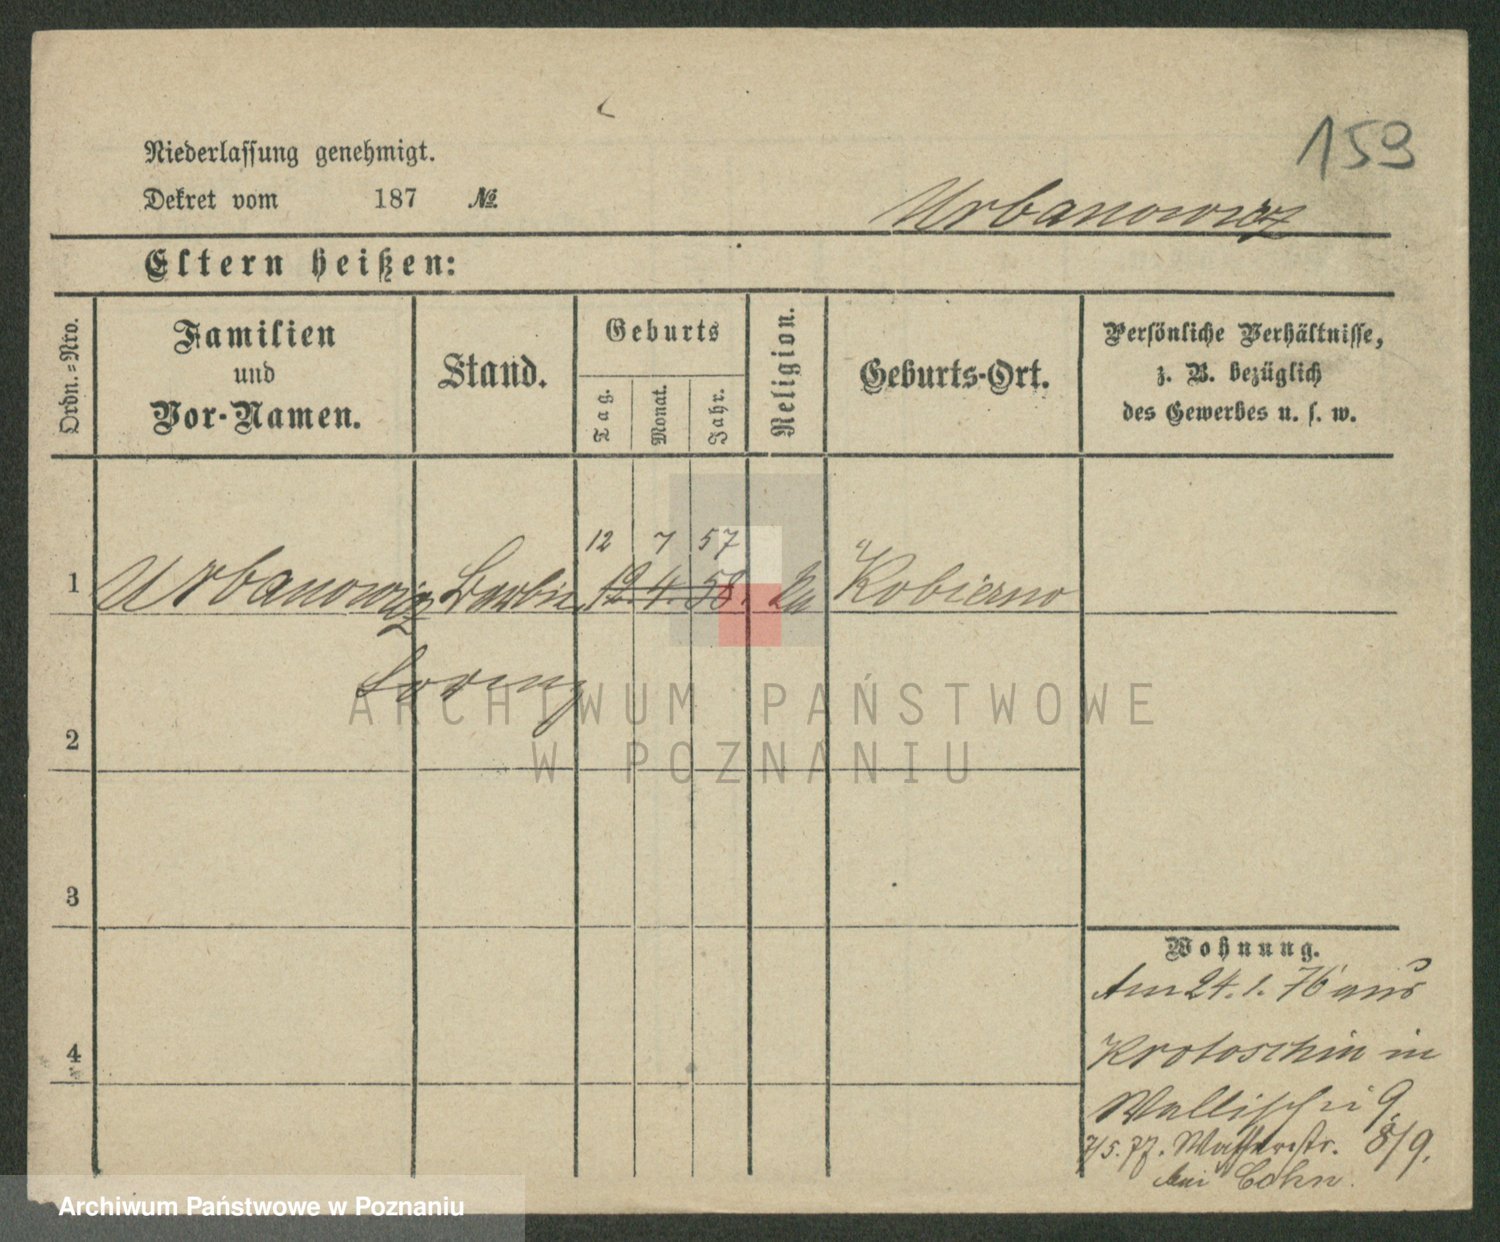 159
Niederlassung genehmigt.
Dekret vom 187 №
Urbanowicz
Eltern heißen:
Ordn.=Nro.
Familien
und
Vor-Namen.
Stand.
Geburts
Tag.
Monat.
Jahr.
Religion.
Geburts-Ort.
Persönliche Verhältnisse,
z. B. bezüglich
des Gewerbes u. s. w.
12 7 57
1 Urbanowicz 12. 4. 58. Kobierno
Lorenz
2
3
4
Wohnung.
Am 24. 1. 76 aus
Krotoschin in
Wallischei 9.
7/5. 77. Wasserstr. 8/9.
bei Cohn.
ARCHIWUM PAŃSTWOWE
W POZNANIU
Archiwum Państwowe w Poznaniu